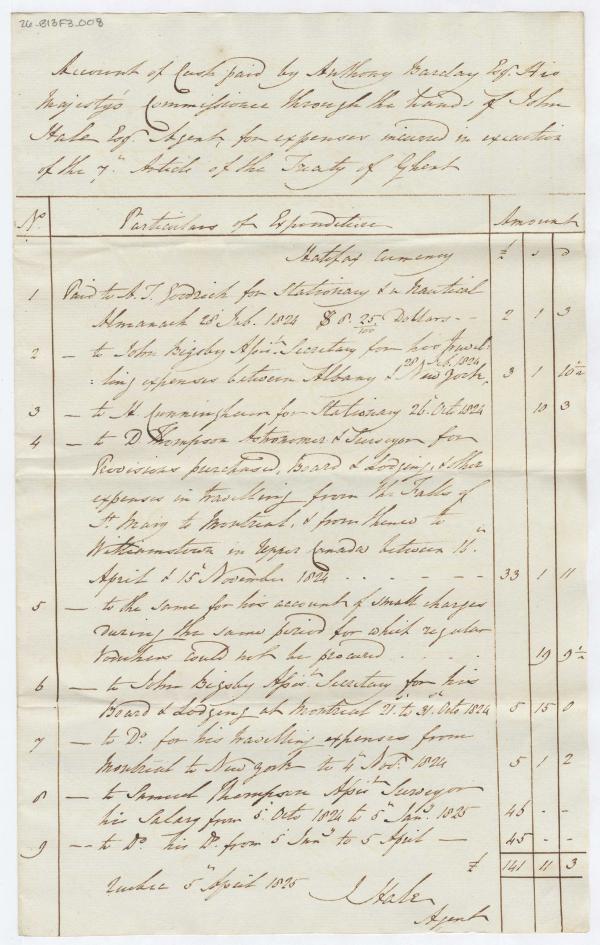 26-813F3-008
Account of Cash paid by Anthony Barclay Esqr. His
Majesty's Commissioner through the hands of John
Hale Esqr. Agent, for expenses incured in execution
of the 7th. Article of the Treaty of Ghent
No. Particulars of Expenditure Amount
Halifax Currency £ s D
1 Paid to A. T. Goodrich for Stationary & a Nautical
Almanack 28 Feb. 1824 $8. 25/100 Dollars - - 2 1 3
2 — to John Bigsby Assist. Secretary for his travel-
:ling expenses between Albany & New York, 28 Feb. 1824 3 1 10½
3 — to H Cunningham for Stationary 26 Octo 1824 10 3
4 — to D Thompson Astronomer & Surveyor for
Provisions purchased, Board & Lodging, & other
expenses in travelling from the Falls of
St. Mary to Montreal, & from thence to
Williamstown in Upper Canada between 15th
April & 15 November 1824 - - - - - - 33 1 11
5 — to the same for his account of small charges
during the same period for which regular
Vouchers could not be procured - - - - 19 9½
6 — to John Bigsby Assist. Secretary for his
Board & Lodging at Montreal 21st. to 31st. Octo 1824 5 15 0
7 — to Do. for his travelling expenses from
Montreal to New York to 4th Novr. 1824 5 1 2
8 — to Samuel Thompson Assist. Surveyor
his Salary from 5 Octo 1824 to 5th Jany. 1825 45 - -
9 — to Do. his Do. from 5 Jany to 5 April — 45 - -
£ 141 11 3
Quebec 5th April 1825
J Hale
Agent